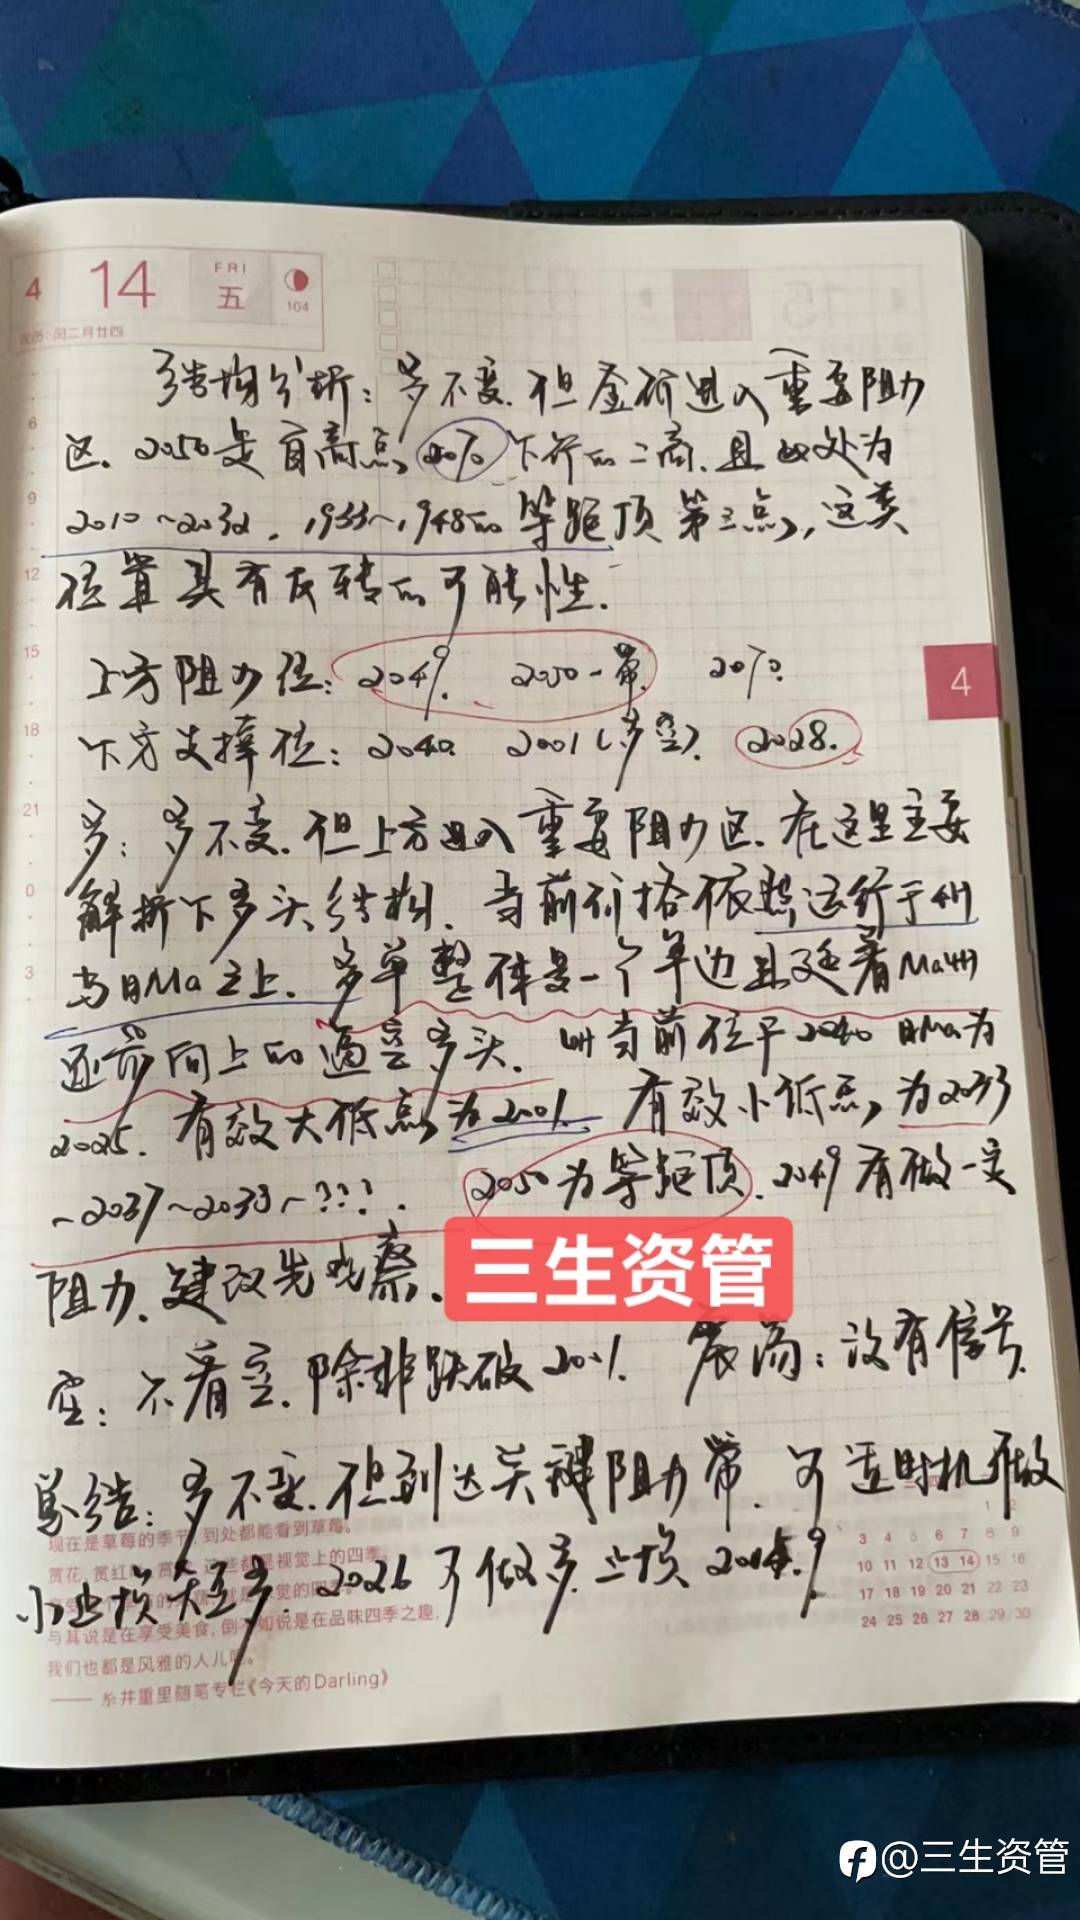 4 14 FRI 五 104
农历:闰二月廿四
结构分析：多不变.但金价进入重要阻力
区.2050是前高点2070下行的二高.且此处为
2010～2032.1933～1948的等距顶第三点,这类
位置具有反转的可能性.
上方阻力位：2049. 2050一带. 2070.
下方支撑位：2040. 2001(多空). 2028.
多：多不变.但上方进入重要阻力区.在这里主要
解析下多头结构.当前价格依然运行于4H
与日Ma之上.多单整体是一个单边且延着Ma4H
逐步向上的逼空多头.4H当前位于2040 日Ma为
2025.有效大低点为2001.有效小低点,为2033
～2037～2033～???. 2050为等距顶.2049有做一实
阻力.建议先观察.
三生资管
空：不看空.除非跌破2001. 震荡：没有信号.
总结：多不变.但到达关键阻力带.可适时机做
小止损 多.2026可做多止损
现在是草莓的季节,到处都能看到草莓。
与其说是在享受美食,倒不如说是在品味四季之趣,
我们也都是风雅的人儿呢。
—— 糸井重里随笔专栏《今天的Darling》
6
9
12
15
18
21
0
3
4
1 2
3 4 5 6 7 8 9
10 11 12 13 14 15 16
17 18 19 20 21 22 23
24 25 26 27 28 29 30
@三生资管